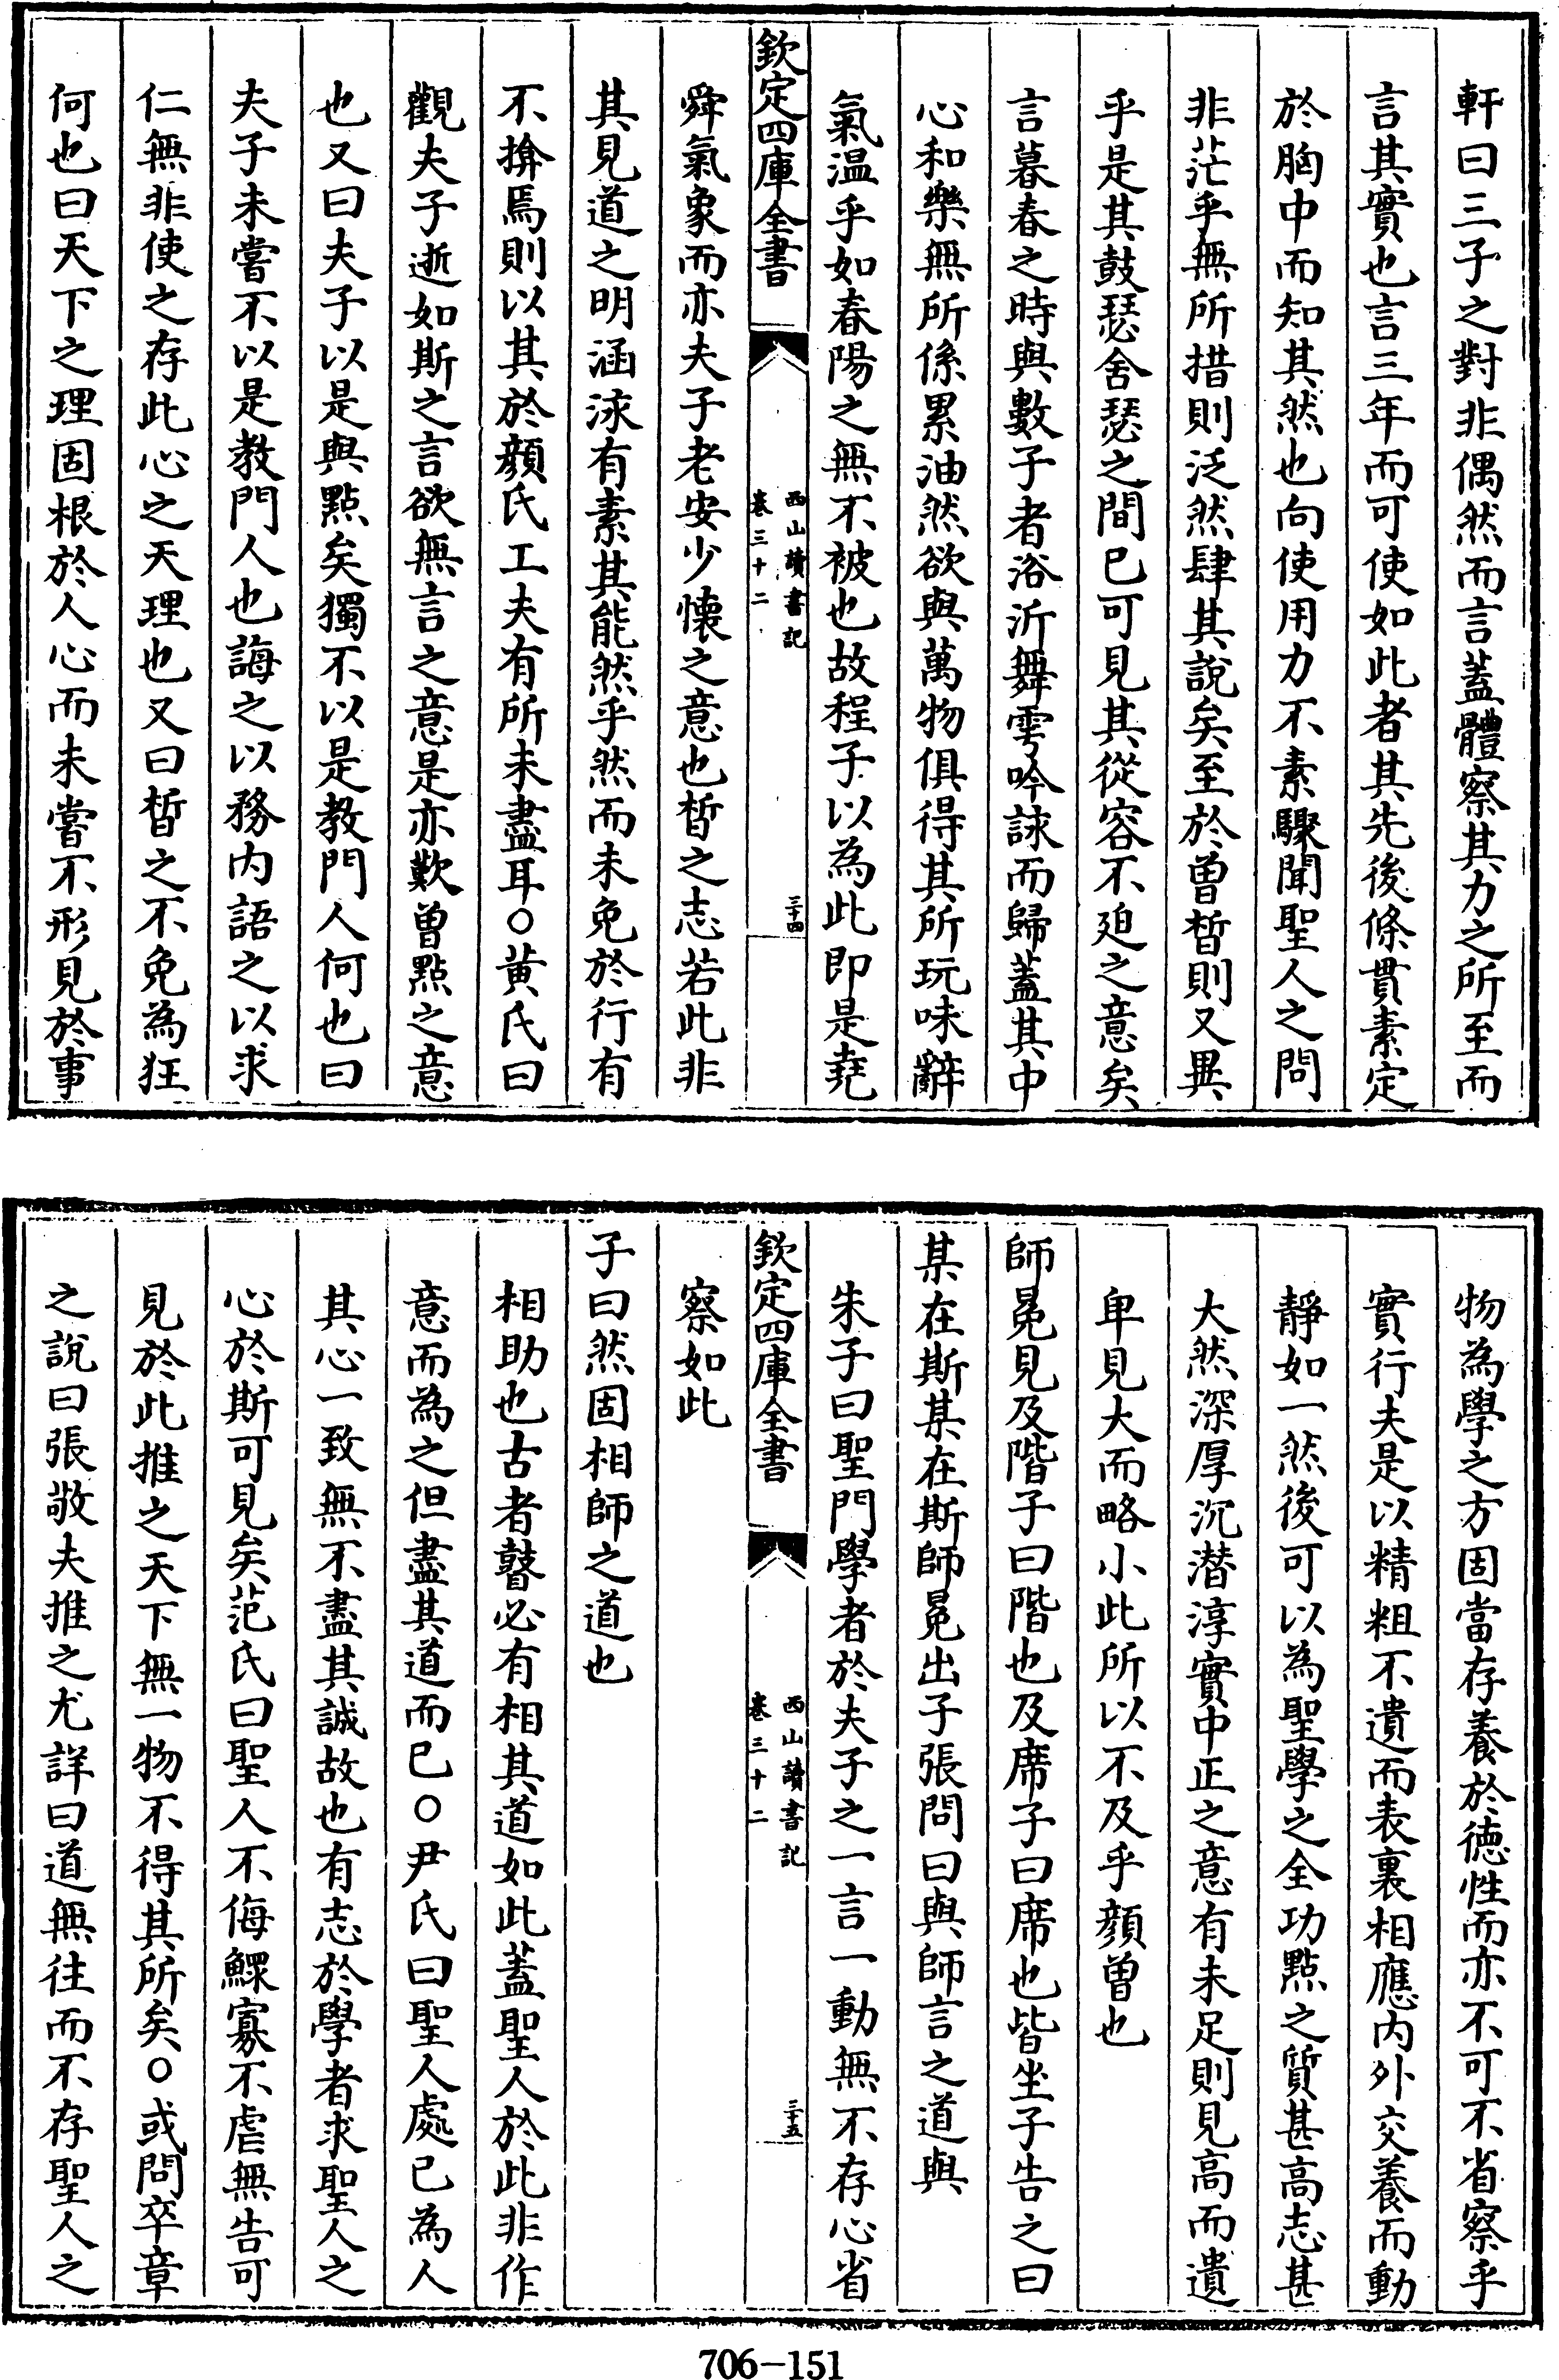 軒曰三子之對非偶然而言蓋體察其力之所至而
言其實也言三年而可使如此者其先後條貫素定
於胸中而知其然也向使用力不素驟聞聖人之問
非茫乎無所措則泛然肆其說矣至於曾晳則又異
乎是其鼓瑟舍瑟之間已可見其從容不廹之意矣
言暮春之時與數子者浴沂舞雩吟詠而歸蓋其中
心和樂無所係累油然欲與萬物俱得其所玩味辭
氣温乎如春陽之無不被也故程子以為此即是堯
欽定四庫全書
西山讀書記
卷三十二
三十四
舜氣象而亦夫子老安少懷之意也晳之志若此非
其見道之明涵泳有素其能然乎然而未免於行有
不揜焉則以其於顔氏工夫有所未盡耳○黄氏曰
觀夫子逝如斯之言欲無言之意是亦歎曾點之意
也又曰夫子以是與點矣獨不以是教門人何也曰
夫子未嘗不以是教門人也誨之以務内語之以求
仁無非使之存此心之天理也又曰晳之不免為狂
何也曰天下之理固根於人心而未嘗不形見於事
物為學之方固當存養於徳性而亦不可不省察乎
實行夫是以精粗不遺而表裏相應内外交養而動
靜如一然後可以為聖學之全功點之質甚高志甚
大然深厚沉潜淳實中正之意有未足則見高而遺
卑見大而略小此所以不及乎顔曾也
師冕見及階子曰階也及席子曰席也皆坐子告之曰
某在斯某在斯師冕出子張問曰與師言之道與
朱子曰聖門學者於夫子之一言一動無不存心省
欽定四庫全書
西山讀書記
卷三十二
三十五
察如此
子曰然固相師之道也
相助也古者瞽必有相其道如此蓋聖人於此非作
意而為之但盡其道而已○尹氏曰聖人處已為人
其心一致無不盡其誠故也有志於學者求聖人之
心於斯可見矣范氏曰聖人不侮鰥寡不虐無告可
見於此推之天下無一物不得其所矣○或問卒章
之說曰張敬夫推之尤詳曰道無往而不存聖人之
706-151